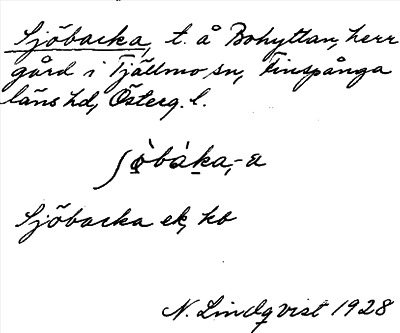 Sjöbacka, t. å Bohyttan, herr
gård i Tjällmo sn, Finspånga
läns hd, Österg. l.
ʃö̀báka, -a
Sjöbacka ek, kb
N. Lindqvist 1928